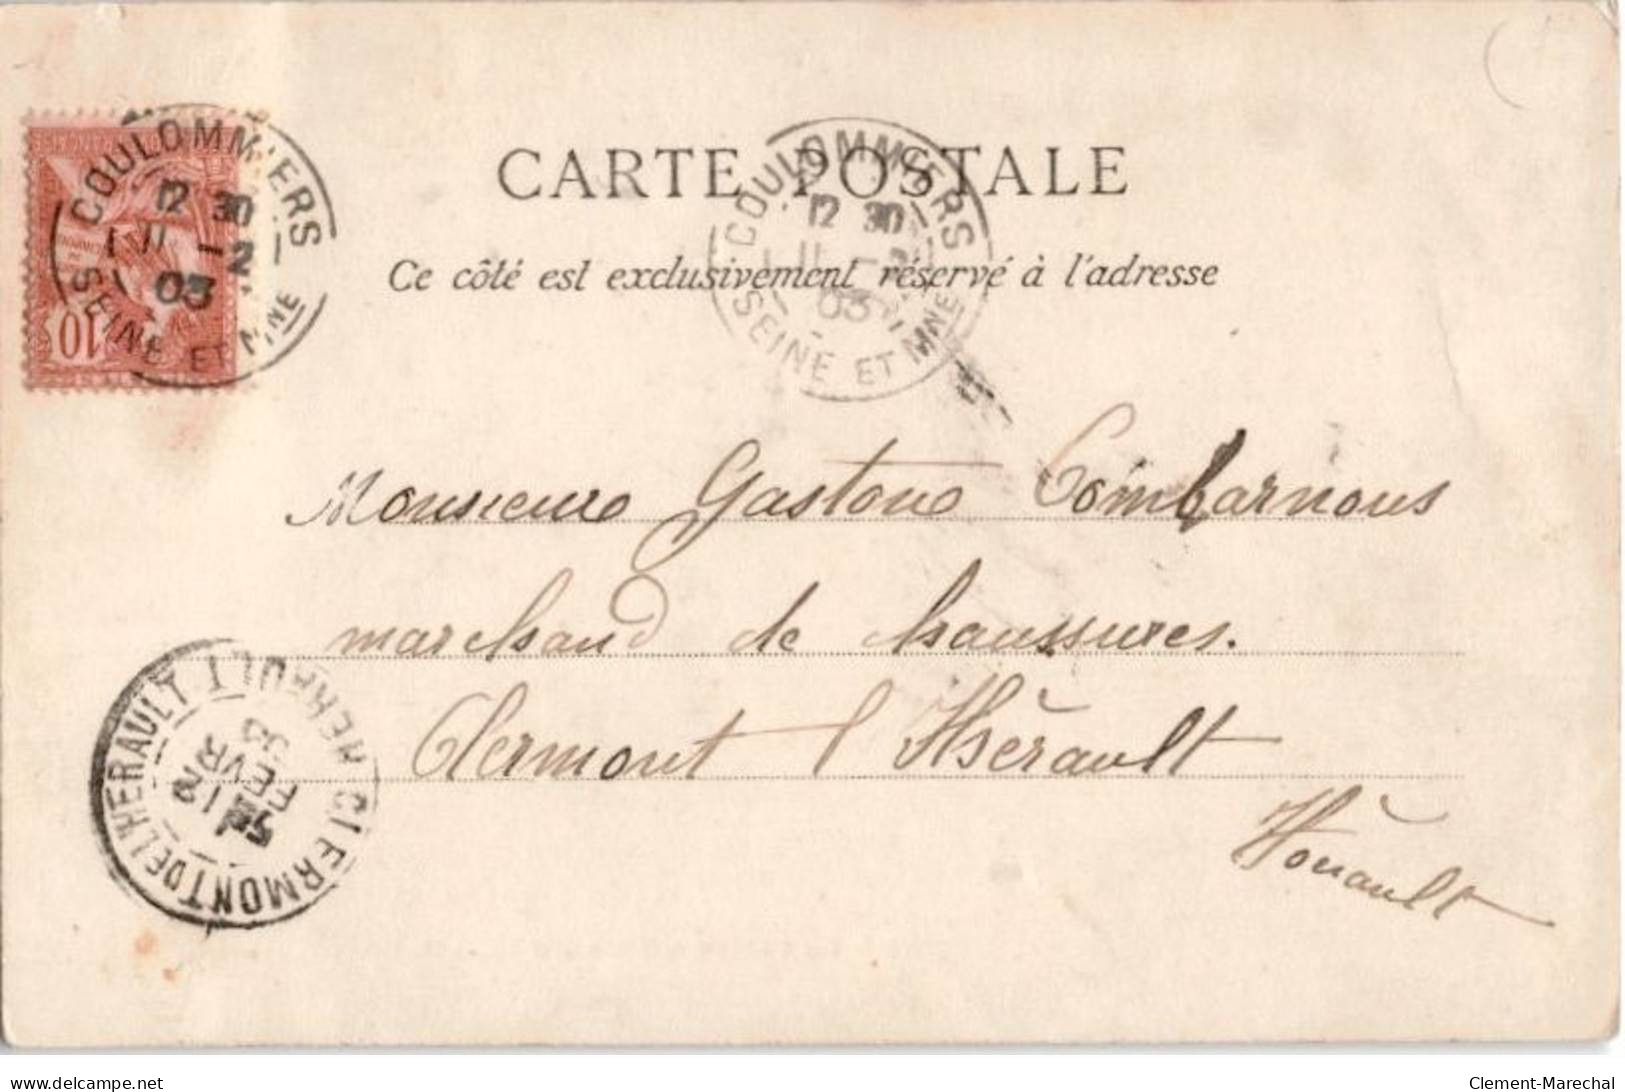 CARTE POSTALE
Ce côté est exclusivement réservé à l'adresse
COULOMMIERS
12 30
11 -2
03
SEINE ET MNE
COULOMMIERS
12 30
11 -2
03
SEINE ET MNE
10
Monsieur Gaston Combarnous
marchand de chaussures.
Clermont l'Hérault
Hérault
CLERMONT DE L'HERAULT HERAULT
12
FEVR
03
delcampe.net
Clement-Marechal